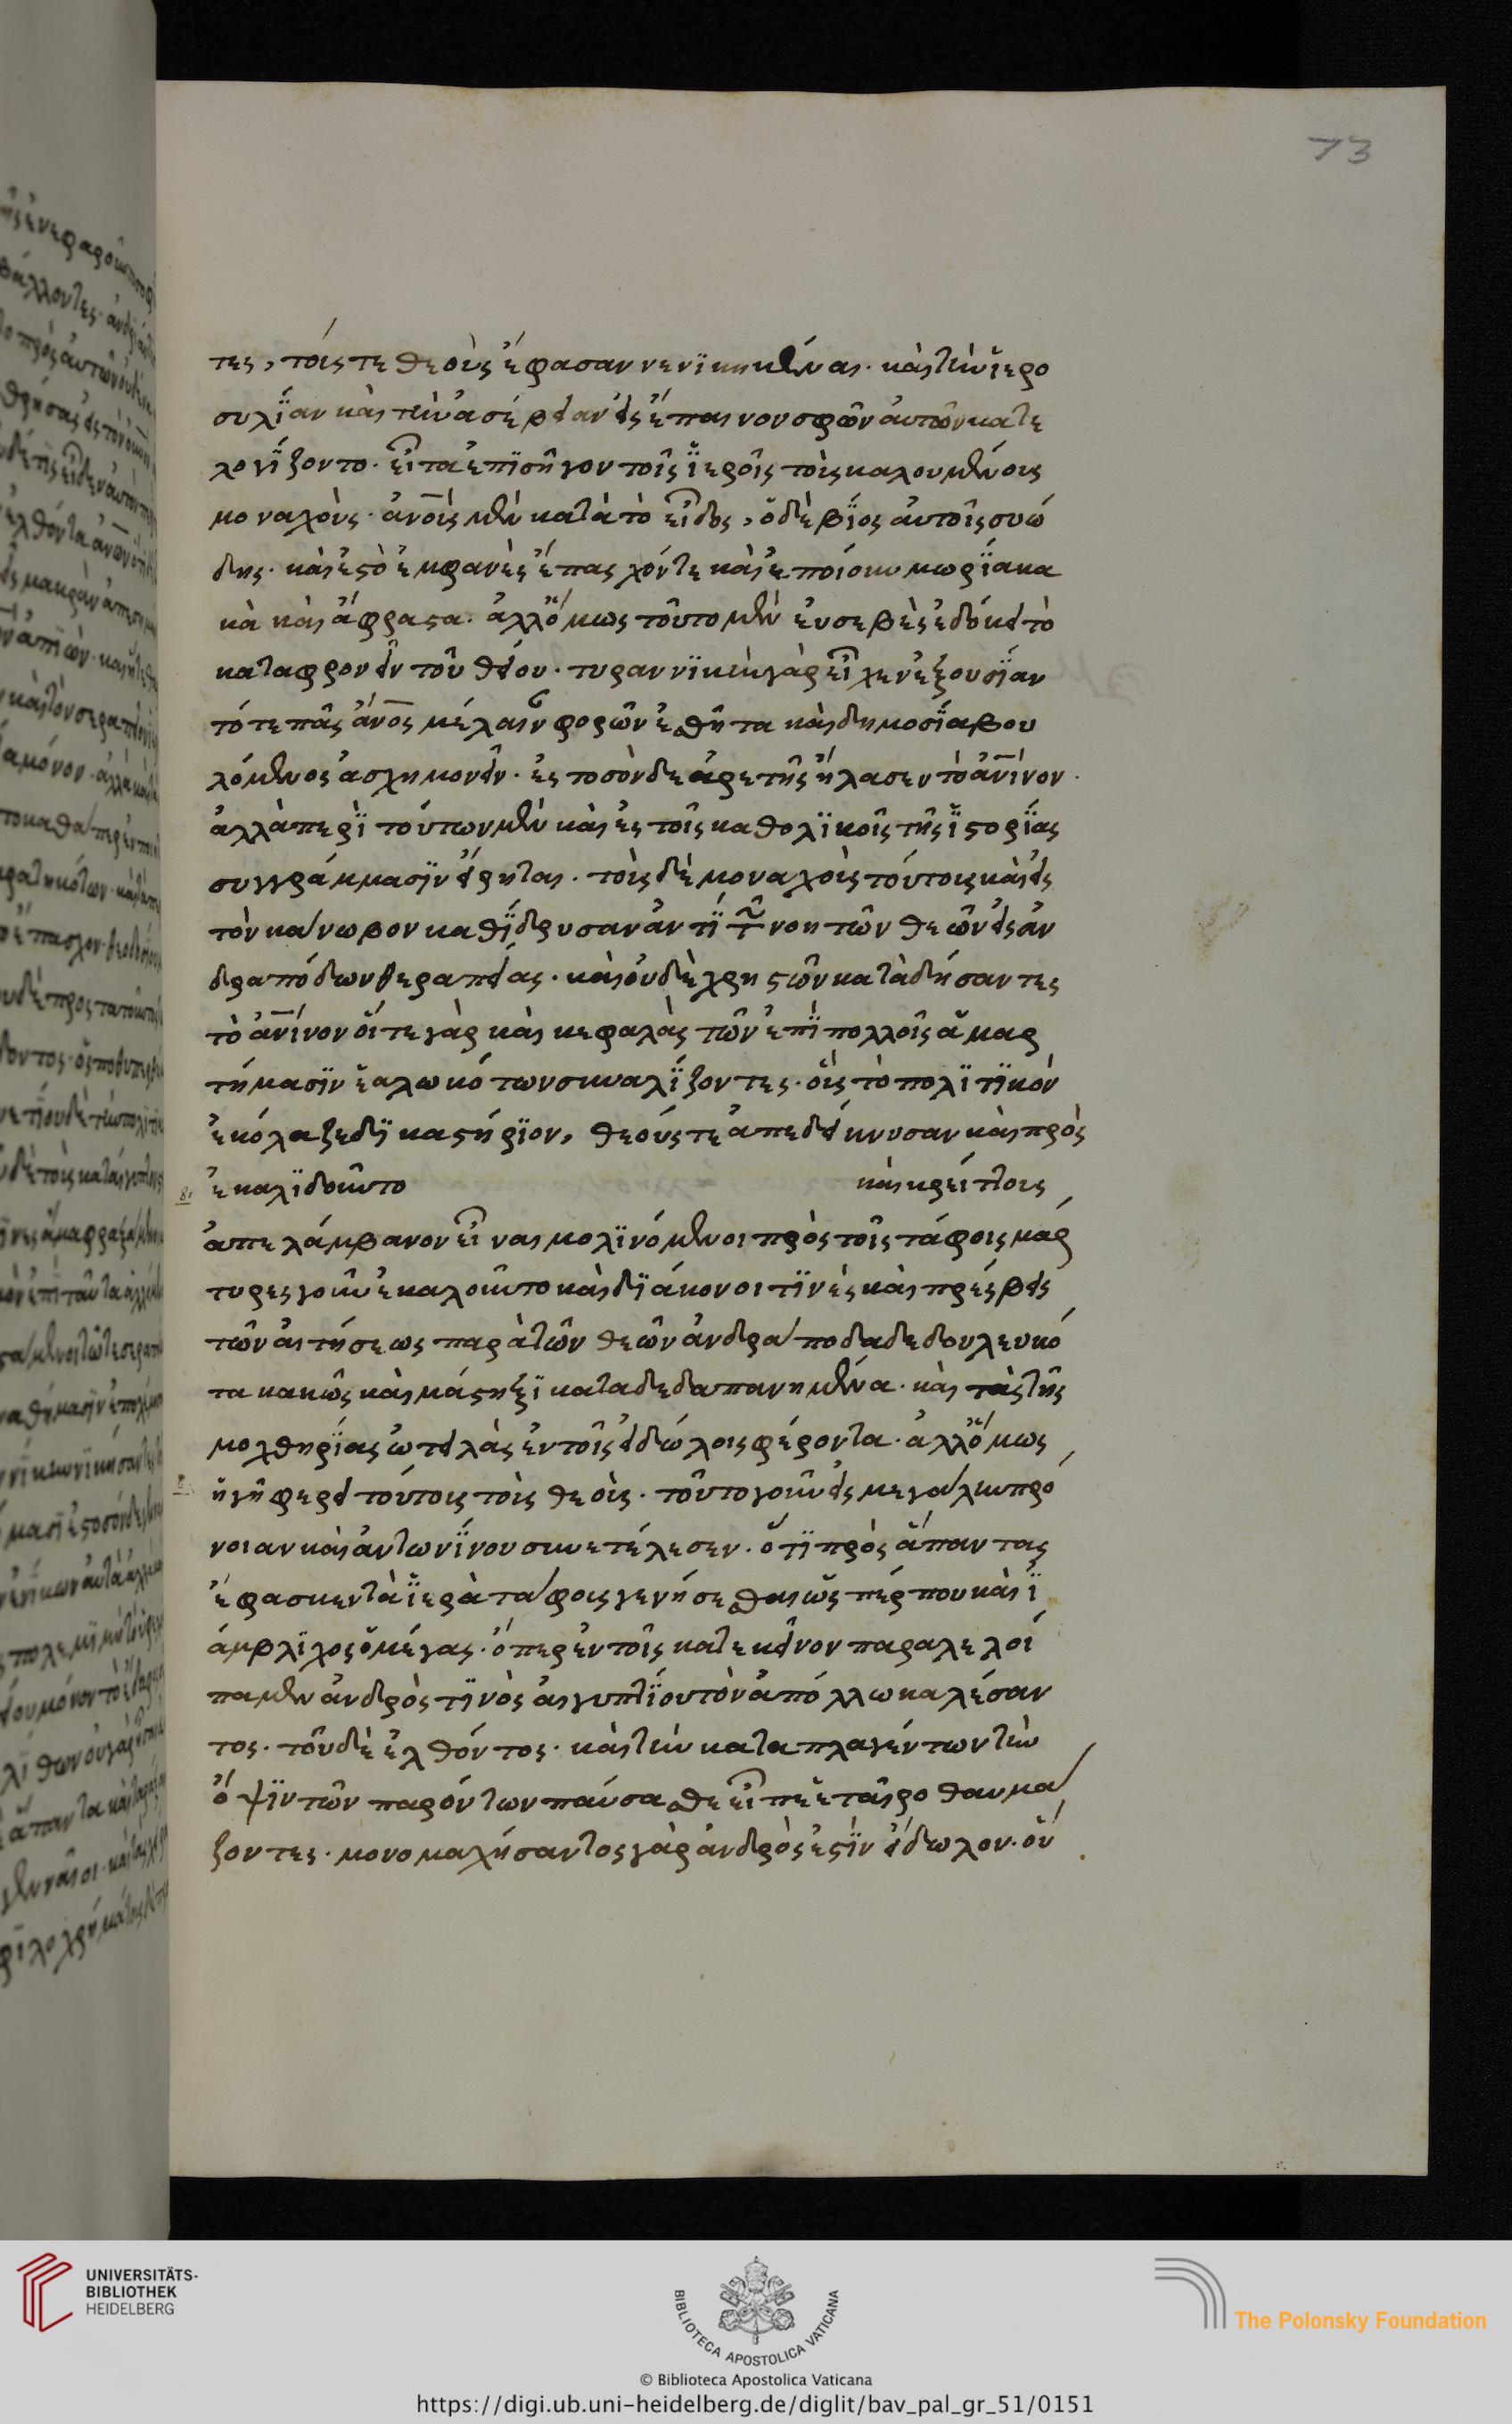 73
τες, τοῖς τε θεοὺς ἔφασαν νενϊκηκέναι. καὶ τὴν ἱερο
συλΐαν καὶ τὴν ἀσέβειαν εἰς ἔπαινον σφῶν αὐτῶν κατε
λογΐζοντο. εἶτα ἐπϊσῆγον τοῖς ἱεροῖς τοὺς καλουμένοις
μοναχοὺς. ἀν̅οις μὲν κατὰ τὸ εἶδος, ὁ δὲ βΐος αὐτοῖς συώ
δης. καὶ ἐς τὸ ἐμφανὲς ἔπασχόν τε καὶ ἐποίουν μυρΐα κα
κὰ καὶ ἄφραστα. ἀλλ' ὅμως τοῦτο μὲν εὐσεβὲς ἐδόκει τὸ
καταφρονεῖν τοῦ θείου. τυραννϊκὴν γὰρ εἶχεν ἐξουσΐαν
τότε πᾶς ἄν̅ος μέλαιναν φορῶν ἐσθῆτα καὶ δημοσΐα βου
λόμενος ἀσχημονεῖν. ἐς τοσόνδε ἀρετῆς ἤλασεν τὸ ἀν̅ϊνον.
ἀλλὰ περὶ τούτων μὲν καὶ ἐς τοῖς καθολϊκοῖς τῆς ἱστορΐας
συγγράμμασϊν εἴρηται. τοὺς δὲ μοναχοὺς τούτοις καὶ εἰς
τὸν κάνωβον καθΐδρυσαν ἀντῒ τῶν νοητῶν θεῶν εἰς ἀν
δραπόδων θεραπείας. καὶ οὐδὲ χρηστῶν καταδήσαντες
τὸ ἀν̅ϊνον ὀστέ γὰρ καὶ κεφαλὰς τῶν ἐπῒ πολλοῖς ἁμαρ
τήμασϊν ἑαλωκότων συναλΐζοντες. οὓς τὸ πολϊτϊκὸν
ἐκόλαζε δϊκαστήρϊον, θεούς τε ἀπεδείκνυσαν καὶ πρὸς
ἐκαλϊδοῦντο καὶ κρείττους
ἀπελάμβανον εἶναι μολϊνόμενοι πρὸς τοῖς τάφοις μάρ
τυρες γοῦν ἐκαλοῦντο καὶ δϊάκονοι τϊνὲς καὶ πρέσβεις
τῶν αἰτήσεως παρὰ τῶν θεῶν ἀνδράποδα δεδουλευκό
τα κακῶς καὶ μάστηξϊ καταδεδαπανημένα. καὶ τὰς τῆς
μοχθηρΐας ὠτειλὰς ἐν τοῖς εἰδώλοις φέροντα. ἀλλ' ὅμως
ἡ γῆ φέρει τούτοις τοὺς θεοὺς. τοῦτο γοῦν εἰς μεγάλην πρό
νοιαν καὶ ἀντωνΐνου συνετέλεσεν. ὅτϊ πρὸς ἅπαντας
ἔφασκεν τὰ ἱερὰ τάφοις γενήσεσθαι ὥσπέρ που καὶ ϊ
άμβλϊχος ὁ μέγας. ὅπερ ἐν τοῖς κατ' ἐκεῖνον παραλελοί
παμεν ἀνδρὸς τϊνὸς αἰγυπτΐου τὸν ἀπόλλω καλέσαν
τος. τοῦ δὲ ἐλθόντος. καὶ τὴν καταπλαγέντων τὴν
ὄψϊν τῶν παρόντων παύσασθε εἶπε ἑταῖρο θαυμά
ζοντες. μονομαχήσαντος γὰρ ἀνδρὸς ἐστϊν εἴδωλον. οὕ
UNIVERSITÄTS-
BIBLIOTHEK
HEIDELBERG
BIBLIOTECA APOSTOLICA VATICANA
The Polonsky Foundation
© Biblioteca Apostolica Vaticana
https://digi.ub.uni-heidelberg.de/diglit/bav_pal_gr_51/0151